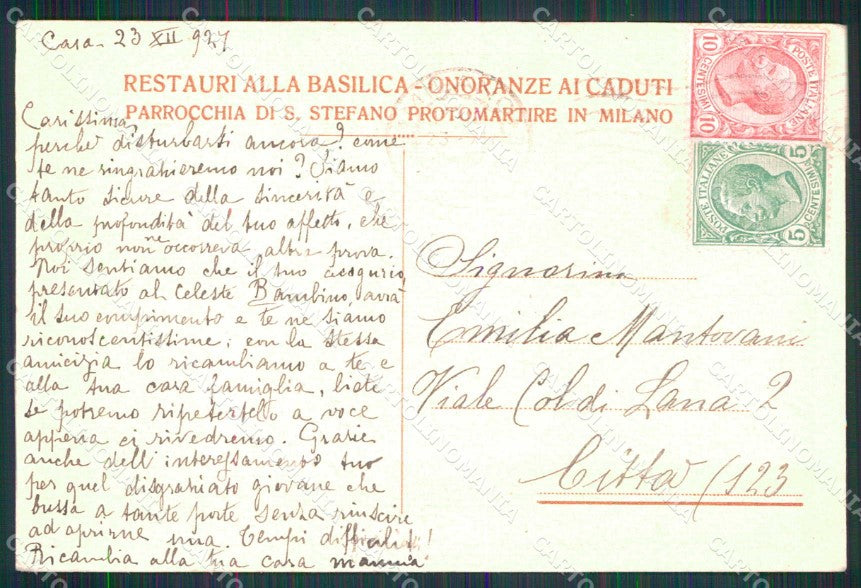 Casa - 23 XII 927
RESTAURI ALLA BASILICA - ONORANZE AI CADUTI
PARROCCHIA DI S. STEFANO PROTOMARTIRE IN MILANO
Carissima,
perché disturbarti ancora? come
te ne ringrazieremo noi? Siamo
tanto sicure della sincerità e
della profondità del tuo affetto, che
proprio non ne occorreva altra prova.
Noi sentiamo che il tuo augurio
presentato al Celeste Bambino, avrà
il suo compimento e te ne siamo
riconoscentissime; con la stessa
amicizia lo ricambiamo a te e
alla tua cara famiglia, liete
se potremo ripetertelo a voce
appena ci rivedremo. Grazie
anche dell'interessamento tuo
per quel disgraziato giovane che
bussa a tante porte senza riuscire
ad aprirne una. Tempi difficili!
Ricambia alla tua cara mamma
10 CENTESIMI 10
POSTE ITALIANE
POSTE ITALIANE
5 CENTESIMI 5
Signorina
Emilia Mantovani
Viale Col di Lana 2
Città (123
CARTOLINOMANIA